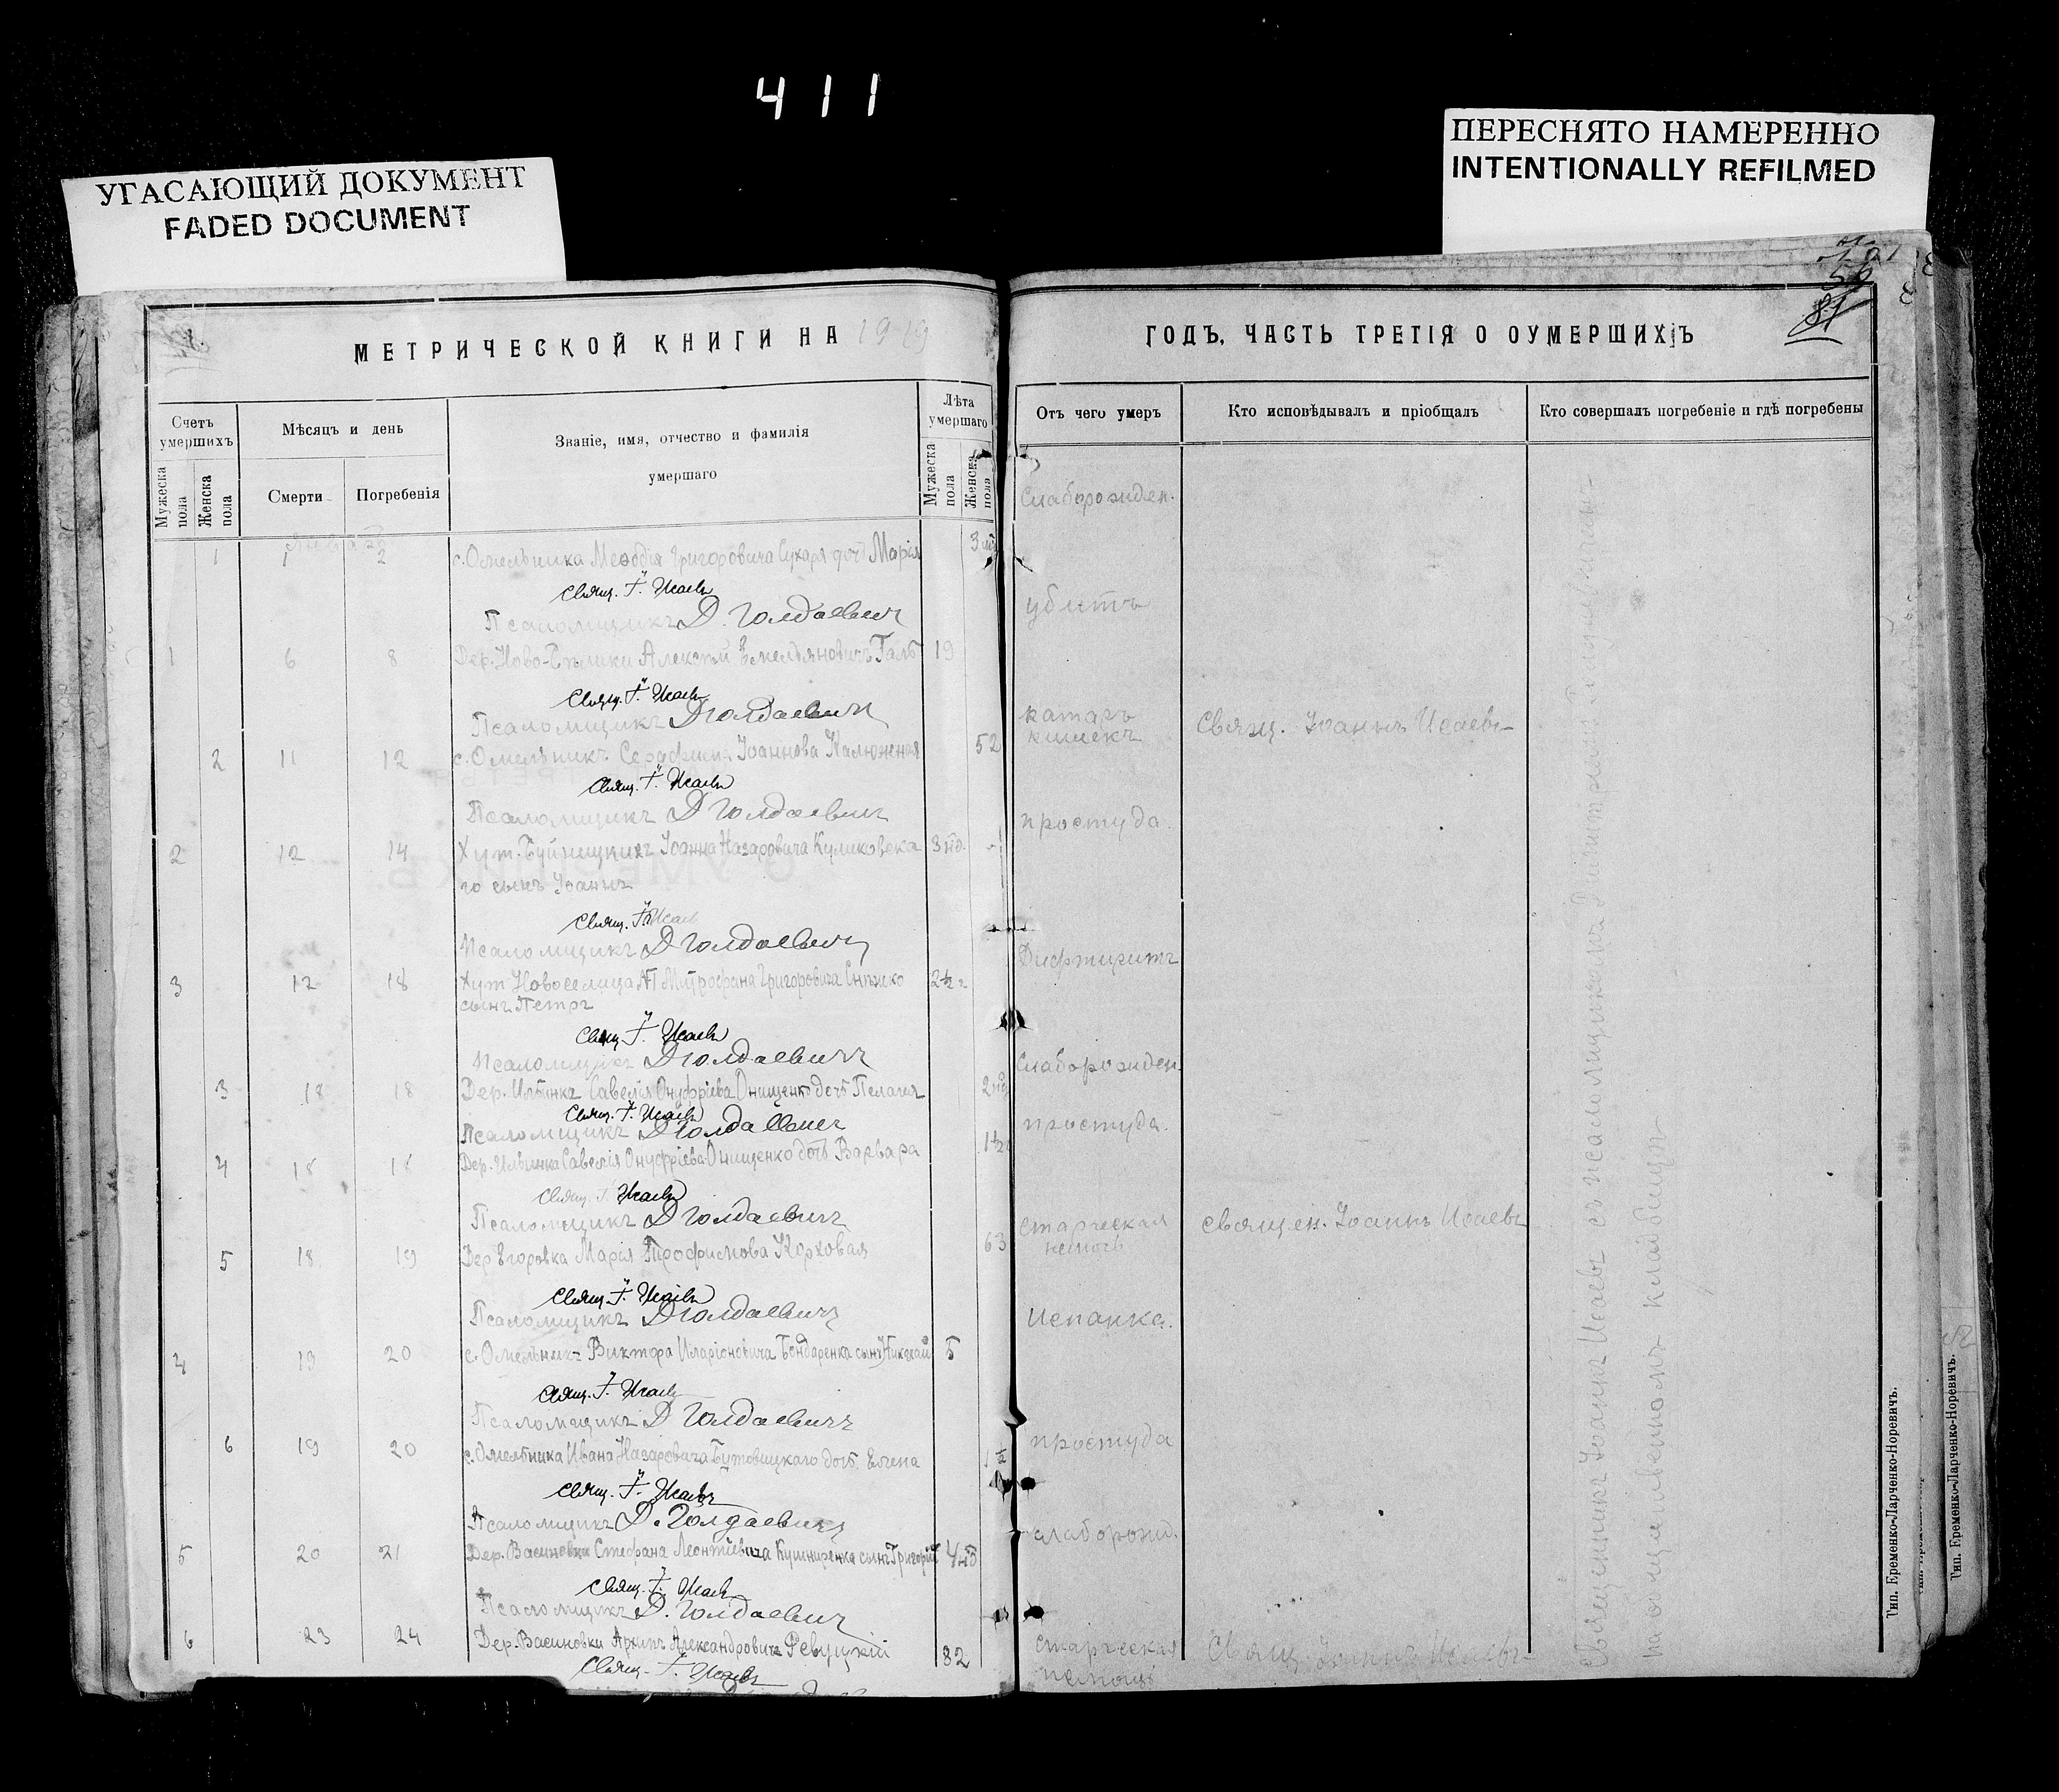 411
УГАСАЮЩИЙ ДОКУМЕНТ
FADED DOCUMENT
ПЕРЕСНЯТО НАМЕРЕННО
INTENTIONALLY REFILMED
56
81
МЕТРИЧЕСКОЙ КНИГИ НА 1919
ГОДЪ, ЧАСТЬ ТРЕТІЯ О ОУМЕРШИХЪ
Счетъ умершихъ
Мужеска пола
Женска пола
Мѣсяцъ и день
Смерти
Погребенія
Званіе, имя, отчество и фамилія
умершаго
Лѣта умершаго
Мужеска пола
Женска пола
Отъ чего умеръ
Кто исповѣдывалъ и пріобщалъ
Кто совершалъ погребеніе и гдѣ погребены
1 1 2 с. Омельника Меѳодія Григоровича Сухаря дочь Марія 3 Слаборожден.
Свящ. І. Исаевъ
Псаломщикъ Д. Голдаевич
1 6 8 Дер. Ново- Алексѣй Емельяновичъ Галь 19 убитъ
Свящ. І. Исаевъ
Псаломщикъ Д Голдаевич
2 11 12 с. Омельникъ Іоаннова Калюжная 52 катаръ кишекъ Свящ. Іоаннъ Исаевъ
Свящ. І. Исаевъ
Псаломщикъ Д Голдаевич
2 12 14 Хут. Буйницкихъ Іоанна Назаровича Куликовска 3 простуда.
го сынъ Іоаннъ
Свящ. І. Исаев
Псаломщикъ Д Голдаевич
3 12 18 Хут Новоселица Митрофана Григоровича 2½ г Дифтиритъ
сынъ Петръ
Свящ. І. Исаевъ
Псаломщикъ Д Голдаевичъ
3 18 18 Дер. Ильинка Савелія Онуфріева Онищенко дочь Пелагея 2 Слаборожден.
Свящ. І. Исаевъ
Псаломщикъ Д Голдаевич
4 18 18 Дер. Ильинка Савелія Онуфріева Онищенко дочь Варвара 1½ простуда.
Свящ. І. Исаевъ
Псаломщикъ Д Голдаевичъ
5 18 19 Дер Егоровка Марія Трофимова Коржовая 63 старческая немощь священ. Іоаннъ Исаевъ
Свящ. І. Исаевъ
Псаломщикъ Д Голдаевичъ
4 19 20 с. Омельникъ Виктора Иларіоновича Бондаренка сынъ Николай 5 испанка.
Свящ. І. Исаевъ
Псаломщикъ Д Голдаевичъ
6 19 20 с. Омельника Ивана Назаровича Бутовицкаго дочь Елена 1½ простуда
Свящ. І. Исаевъ
Псаломщикъ Д. Голдаевичъ
5 20 21 Дер. Васиновки Стефана Леонтіевича Кушниренка сынъ Григорій 4 слаборожд.
Свящ. І. Исаевъ
Псаломщикъ Д. Голдаевич
6 23 24 Дер. Васиновки Архипъ Александровичъ Ревуцкій 82 старческая немощь Свящ. Іоаннъ Исаевъ
Свящ. І. Исаевъ
Священникъ Іоаннъ Исаевъ съ псаломщикомъ Димитріемъ
на общественномъ кладбищѣ
Тип. Еременко-Ларченко-Норевичъ.
Тип. Еременко-Ларченко-Норевичъ.